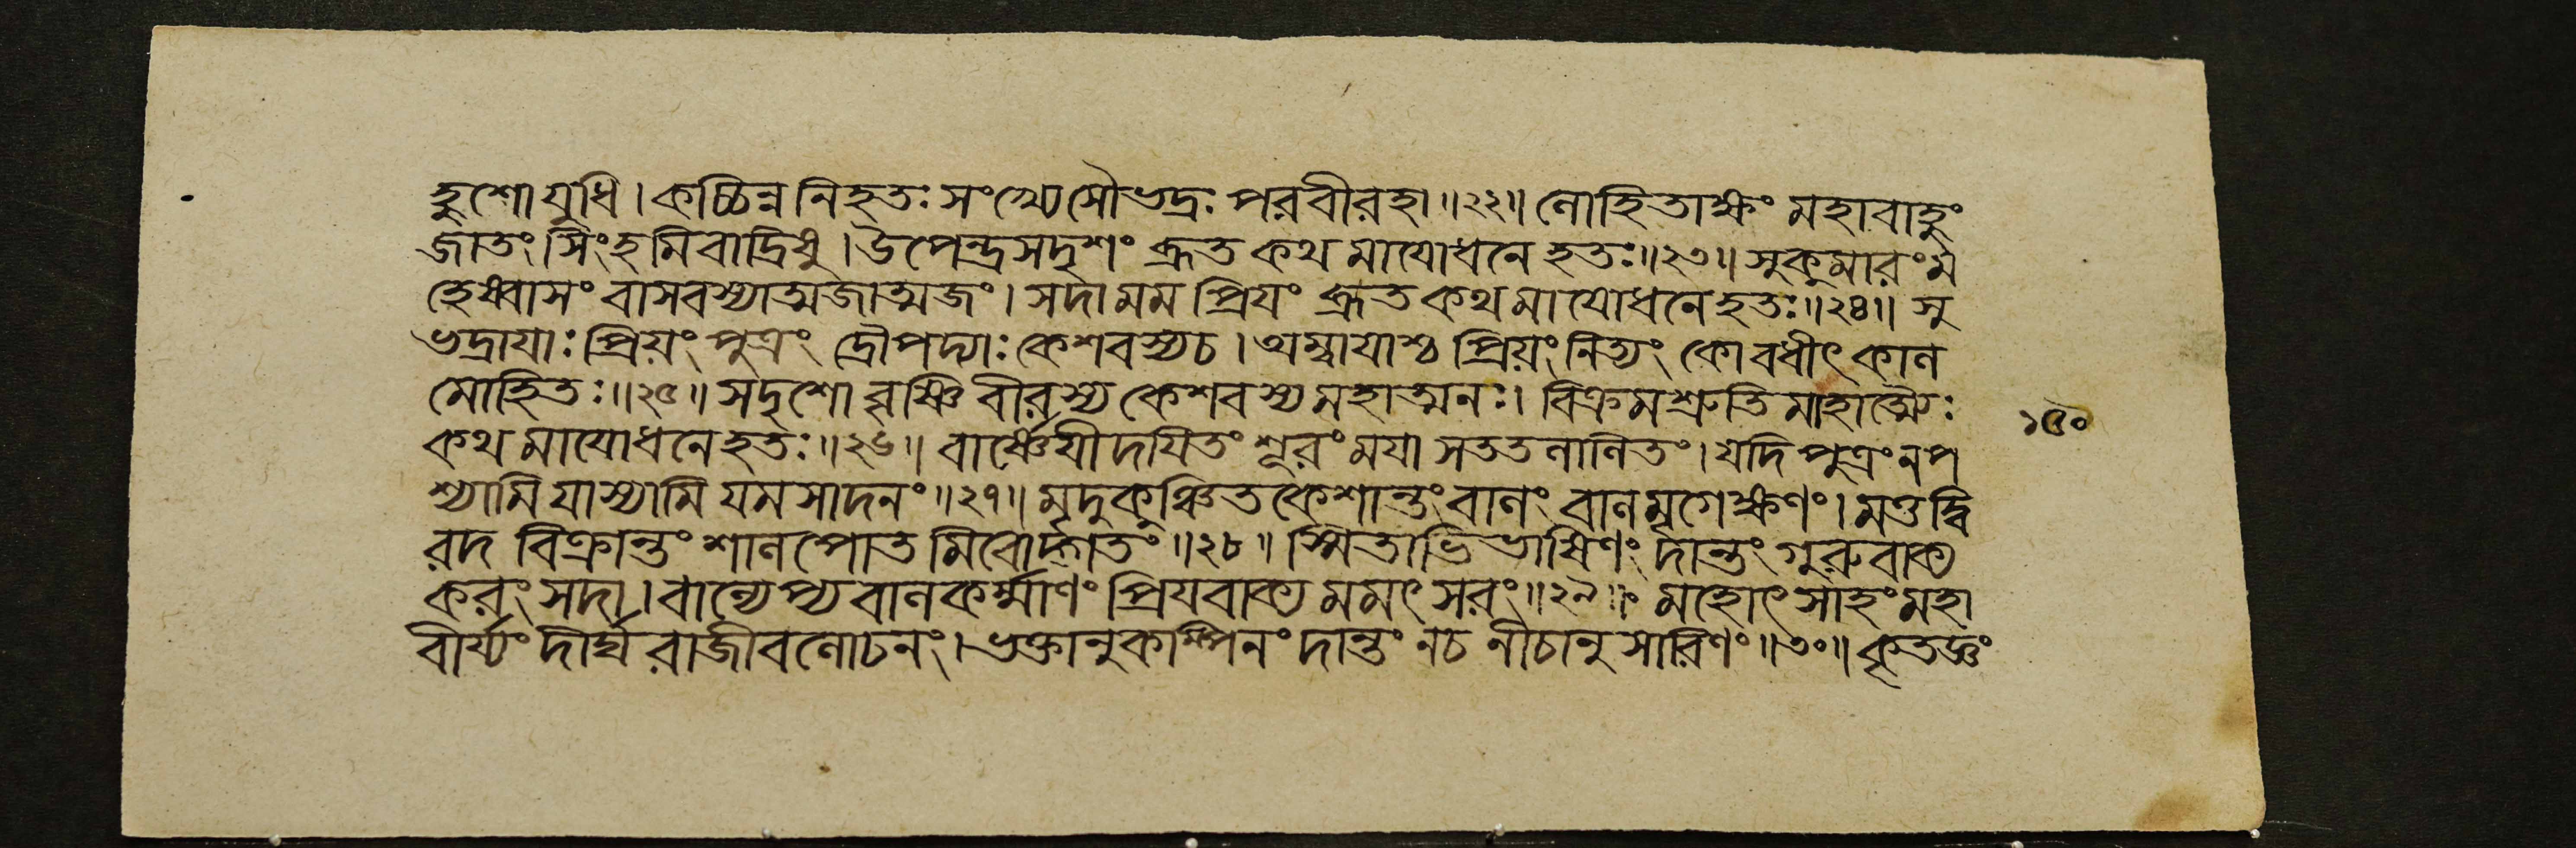 হুশো যুধি। কচ্চিন্ন নিহতঃ সংখ্যে সৌভদ্রঃ পরবীরহা॥২২॥ লোহিতাক্ষং মহাবাহুং
জাতং সিংহমিবাদ্রিষু। উপেন্দ্রসদৃশং ব্রূত কথমাযোধনে হতঃ॥২৩॥ সুকুমারং ম
হেষ্বাসং বাসবস্যাত্মজাত্মজং। সদা মম প্রিযং ব্রূত কথমাযোধনে হতঃ॥২৪॥ সু
ভদ্রাযাঃ প্রিয়ং পুত্রং দ্রৌপদ্যাঃ কেশবস্য চ। অম্বাযাশ্চ প্রিয়ং নিত্যং কোবধীৎ কাল
মোহিতঃ॥২৫॥ সদৃশো বৃষ্ণিবীরস্য কেশবস্য মহাত্মনঃ। বিক্রমশ্রুতিমাহাত্ম্যৈঃ
কথমাযোধনে হতঃ॥২৬॥ বার্ষ্ণেযীদযিতং শূরং মযা সততলালিতং। যদি পুত্রং ন প
শ্যামি যাস্যামি যমসাদনং॥২৭॥ মৃদুকুঞ্চিতকেশান্তং বালং বালমৃগেক্ষণং। মত্তদ্বি
রদ বিক্রান্তং শালপোতমিবোদ্গতং॥২৮॥ স্মিতাভিভাষিণং দান্তং গুরুবাক্য
করং সদা। বাল্যেপ্যবালকর্ম্মাণং প্রিযবাক্যমমৎসরং॥২৯॥ মহোৎসাহং মহা
বীর্য্যং দীর্ঘরাজীবলোচনং। ভক্তানুকম্পিনং দান্তং ন চ নীচানুসারিণং॥৩০॥ কৃতজ্ঞং
১৫০